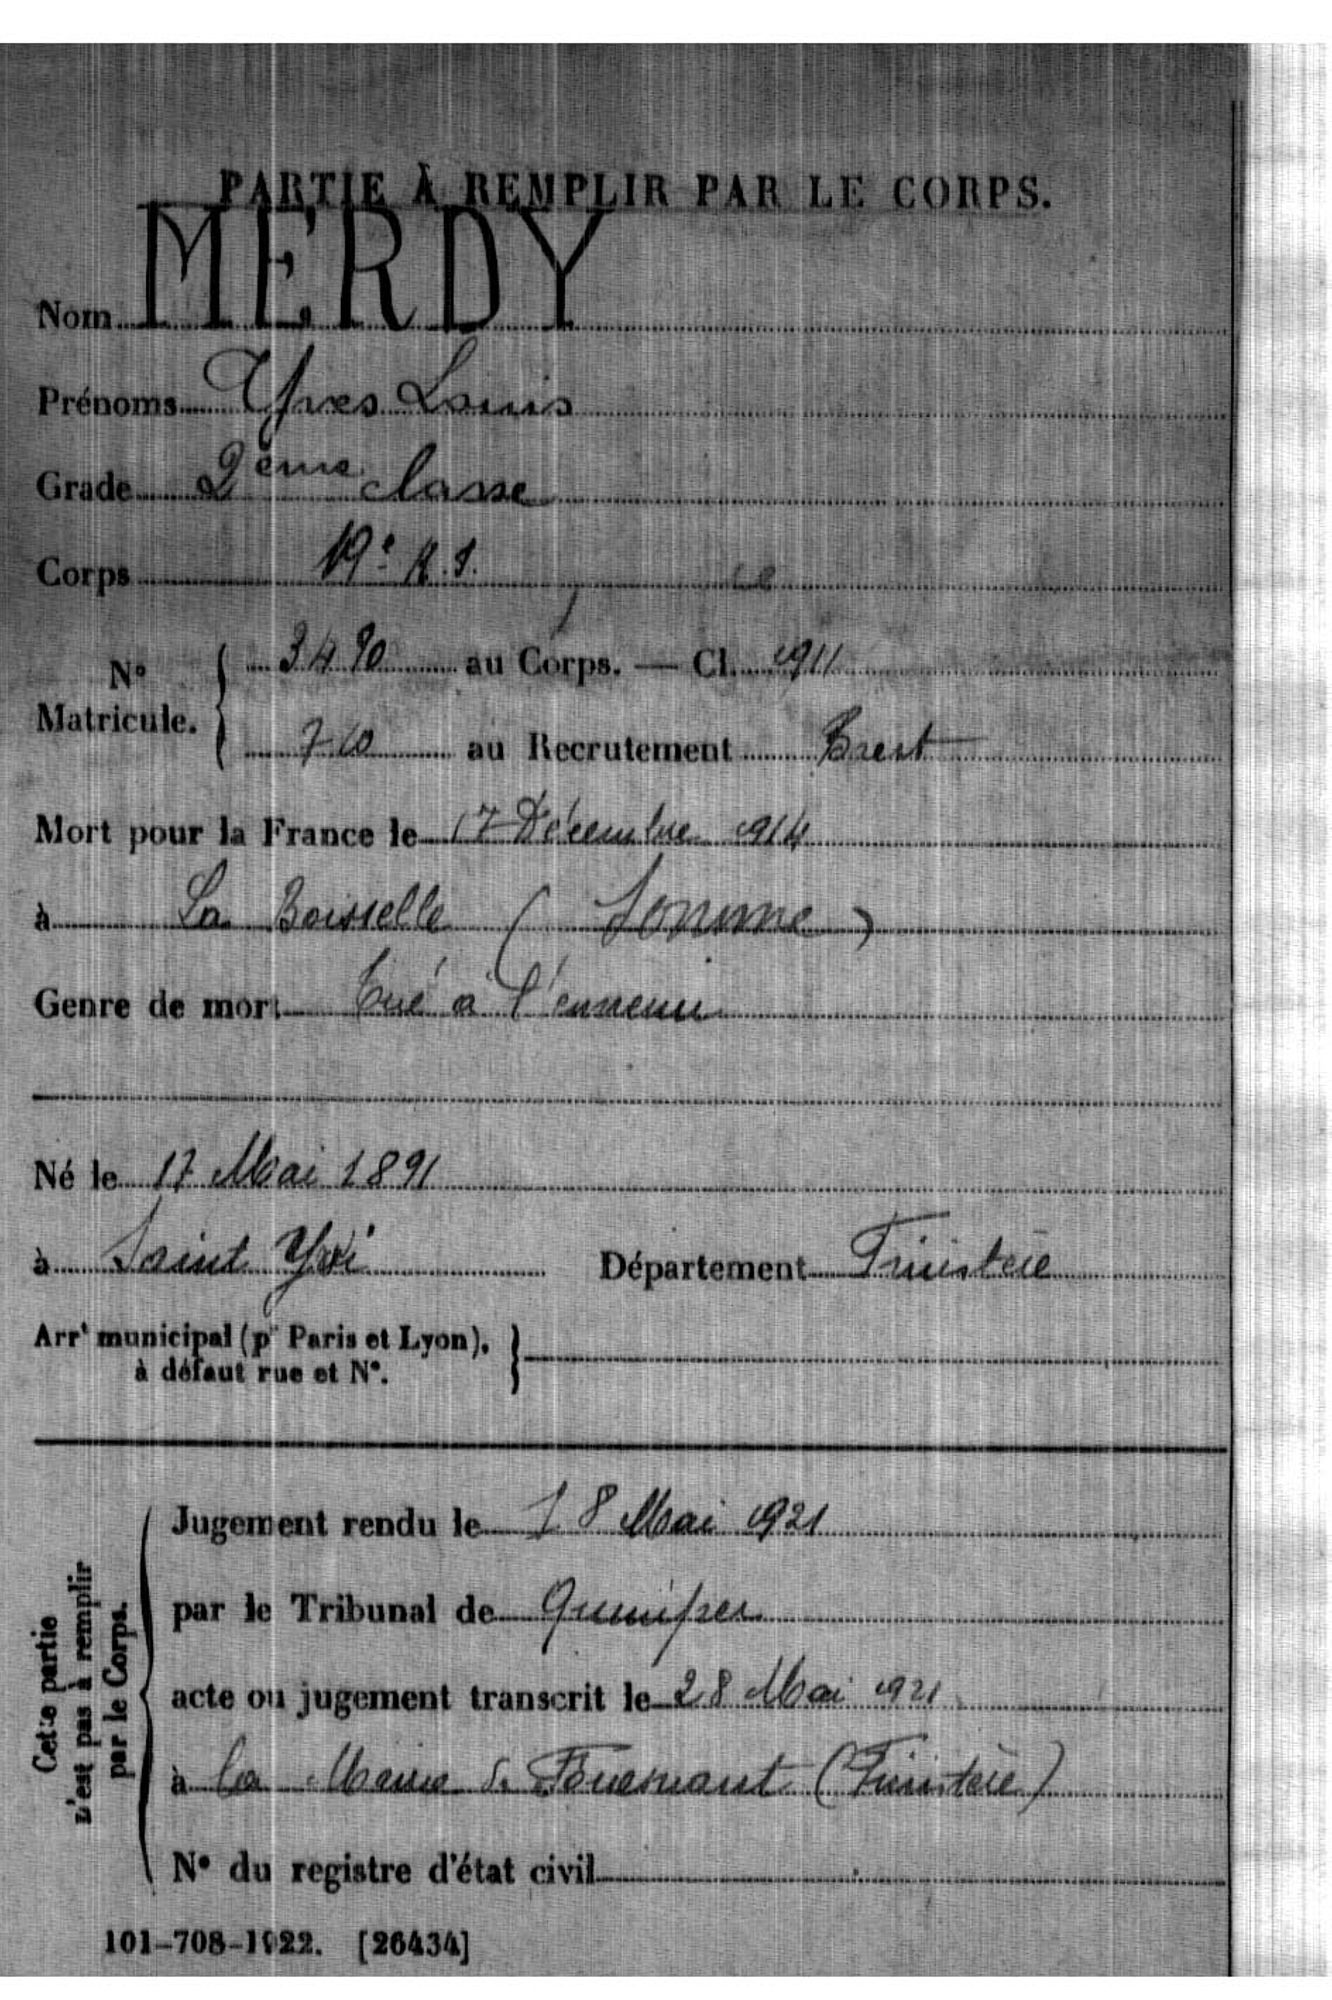 PARTIE À REMPLIR PAR LE CORPS.
Nom MERDY
Prénoms Yves Louis
Grade 2ème classe
Corps 19e R.I.
No Matricule. { 3490 au Corps. — Cl. 1911
710 au Recrutement Brest
Mort pour la France le 17 Décembre 1914
à La Boisselle (Somme)
Genre de mort Tué à l'ennemi
Né le 17 Mai 1891
à Saint Yvi Département Finistère
Arrt municipal (pr Paris et Lyon),
à défaut rue et N°.
Cette partie
n'est pas à remplir
par le Corps.
Jugement rendu le 18 Mai 1921
par le Tribunal de Quimper
acte ou jugement transcrit le 28 Mai 1921
à la Mairie de Fouesnant (Finistère)
N° du registre d'état civil
101-708-1922. [26434]